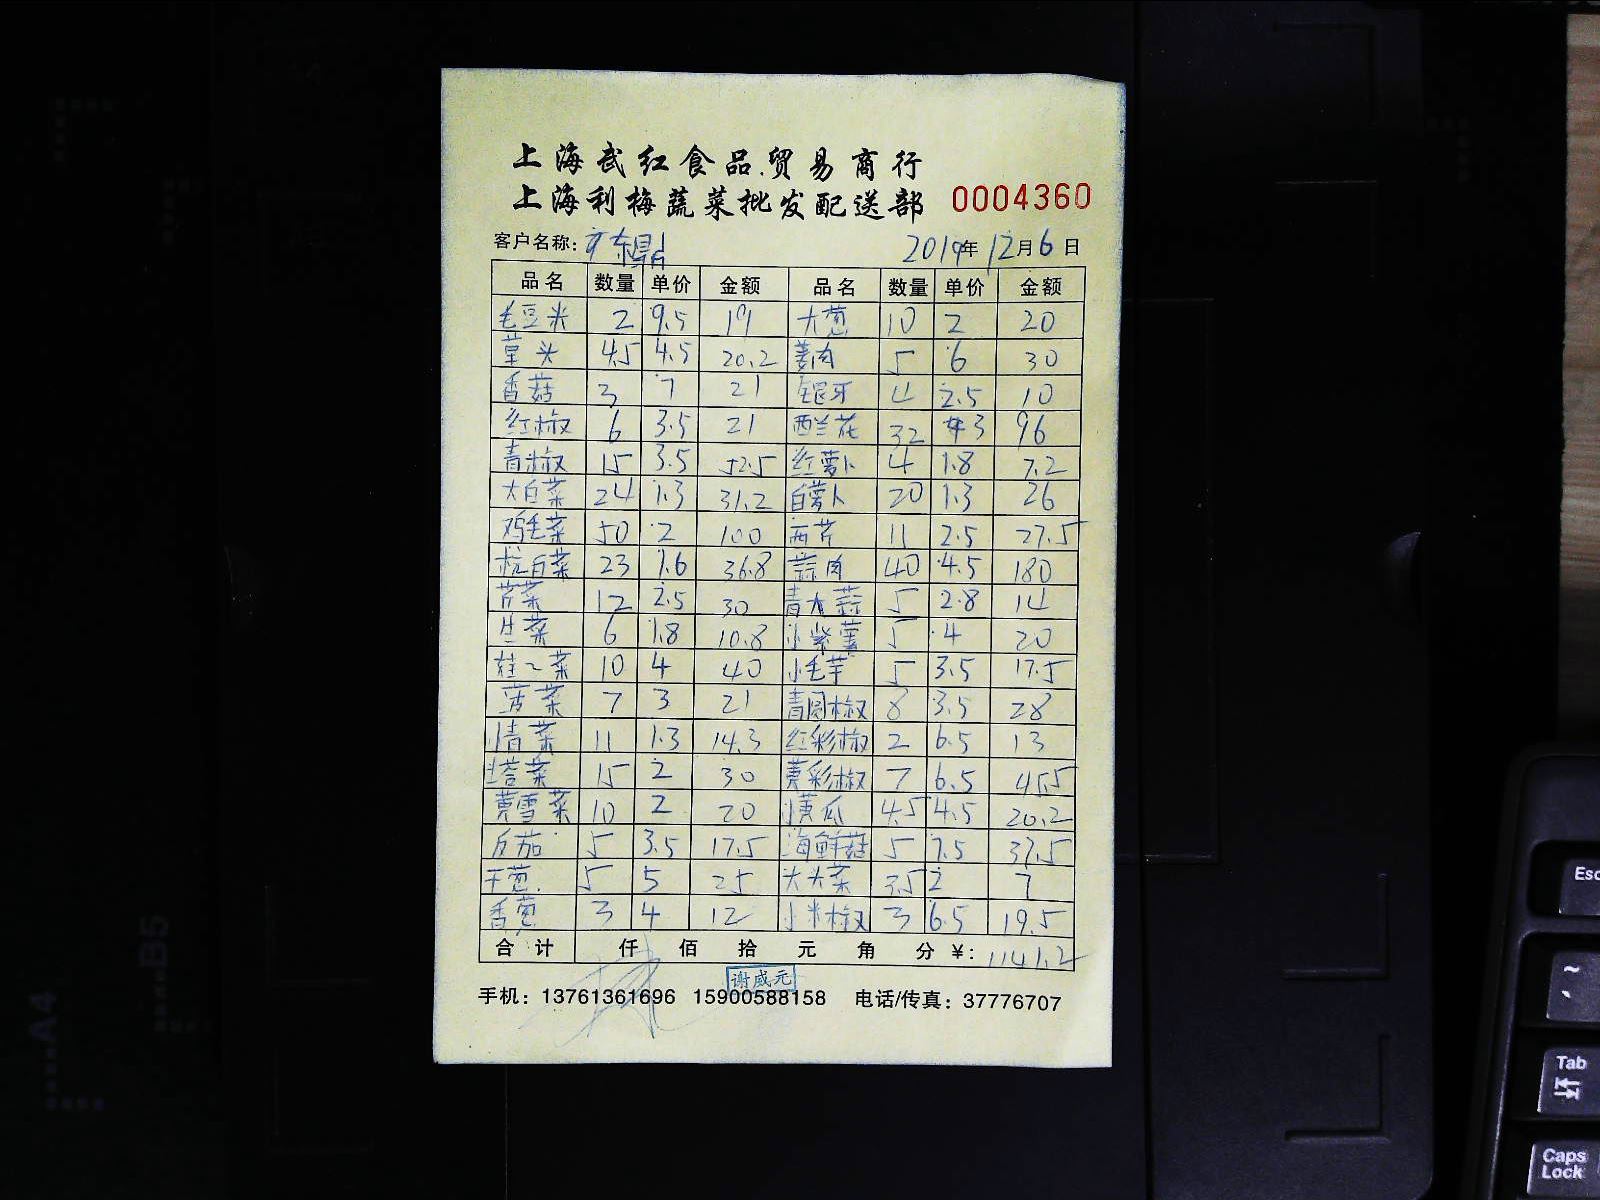 上海武红食品贸易商行
上海利梅蔬菜批发配送部 0004360
客户名称: 2019年12月6日
品名 数量 单价 金额 品名 数量 单价 金额
毛豆米 2 9.5 19 大葱 10 2 20
草头 4.5 4.5 20.2 姜肉 5 6 30
香菇 3 7 21 银牙 4 2.5 10
红椒 6 3.5 21 西兰花 32 3 96
青椒 15 3.5 52.5 红萝卜 4 1.8 7.2
大白菜 24 1.3 31.2 白萝卜 20 1.3 26
鸡毛菜 50 2 100 西芹 11 2.5 27.5
杭白菜 23 1.6 36.8 蒜肉 40 4.5 180
芹菜 12 2.5 30 青大蒜 5 2.8 14
生菜 6 1.8 10.8 小紫薯 5 4 20
娃娃菜 10 4 40 小毛芋 5 3.5 17.5
菠菜 7 3 21 青圆椒 8 3.5 28
小青菜 11 1.3 14.3 红彩椒 2 6.5 13
塔菜 15 2 30 黄彩椒 7 6.5 45.5
黄雪菜 10 2 20 小黄瓜 4.5 4.5 20.2
方茄 5 3.5 17.5 海鲜菇 5 7.5 37.5
干葱 5 5 25 大头菜 3.5 2 7
香葱 3 4 12 小米椒 3 6.5 19.5
合计 仟 佰 拾 元 角 分 ¥: 1141.2
谢威元
手机: 13761361696 15900588158 电话/传真: 37776707
Esc
~
Tab
Caps Lock
A4
B5